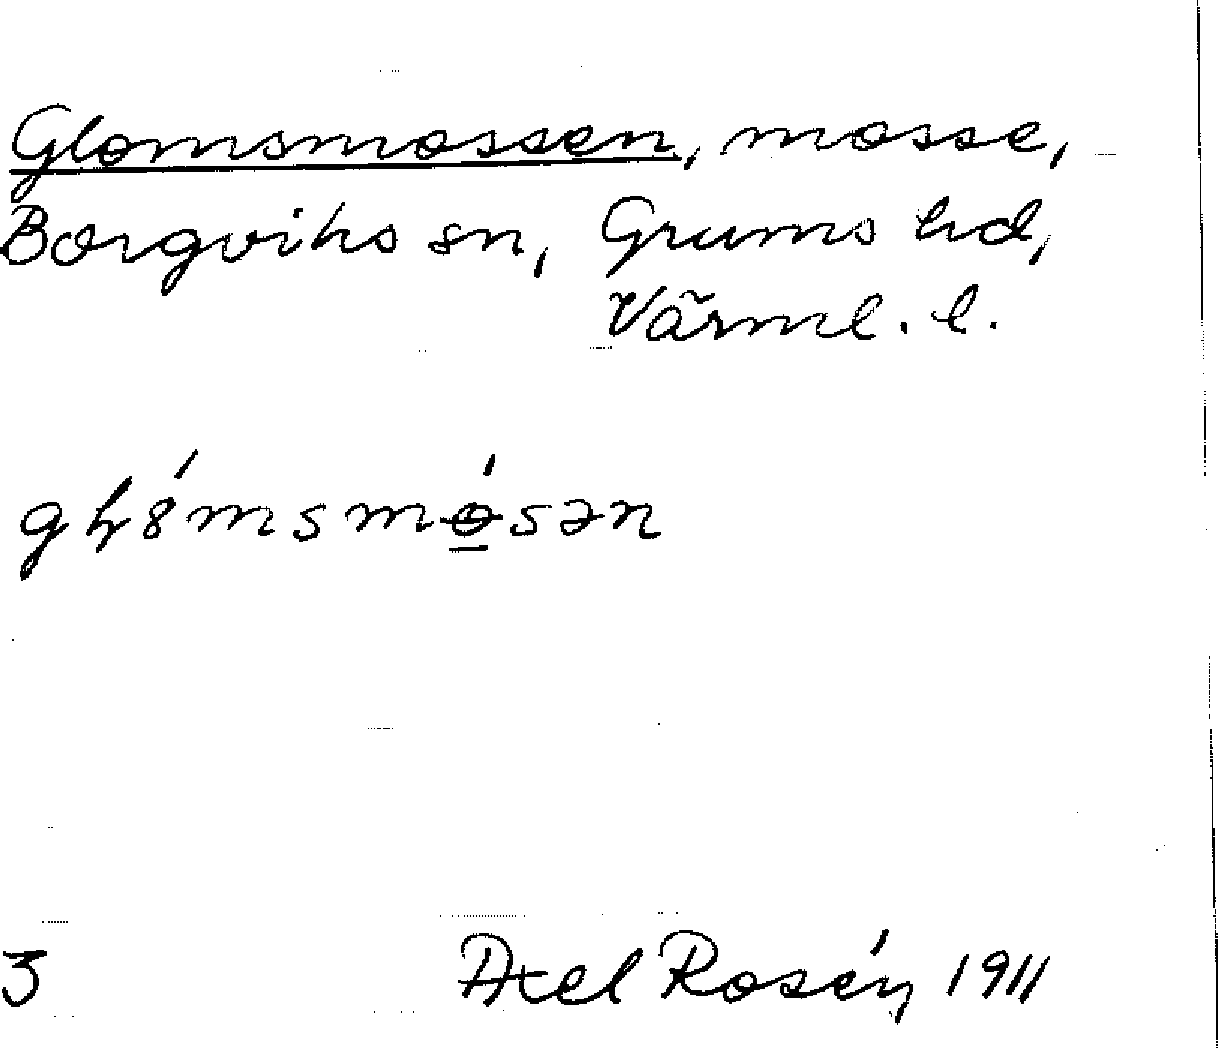 Glomsmossen, mosse,
Borgviks sn, Grums hd,
Värml. l.
gɫ8́msmɵ̲́sən
3 Axel Rosén 1911